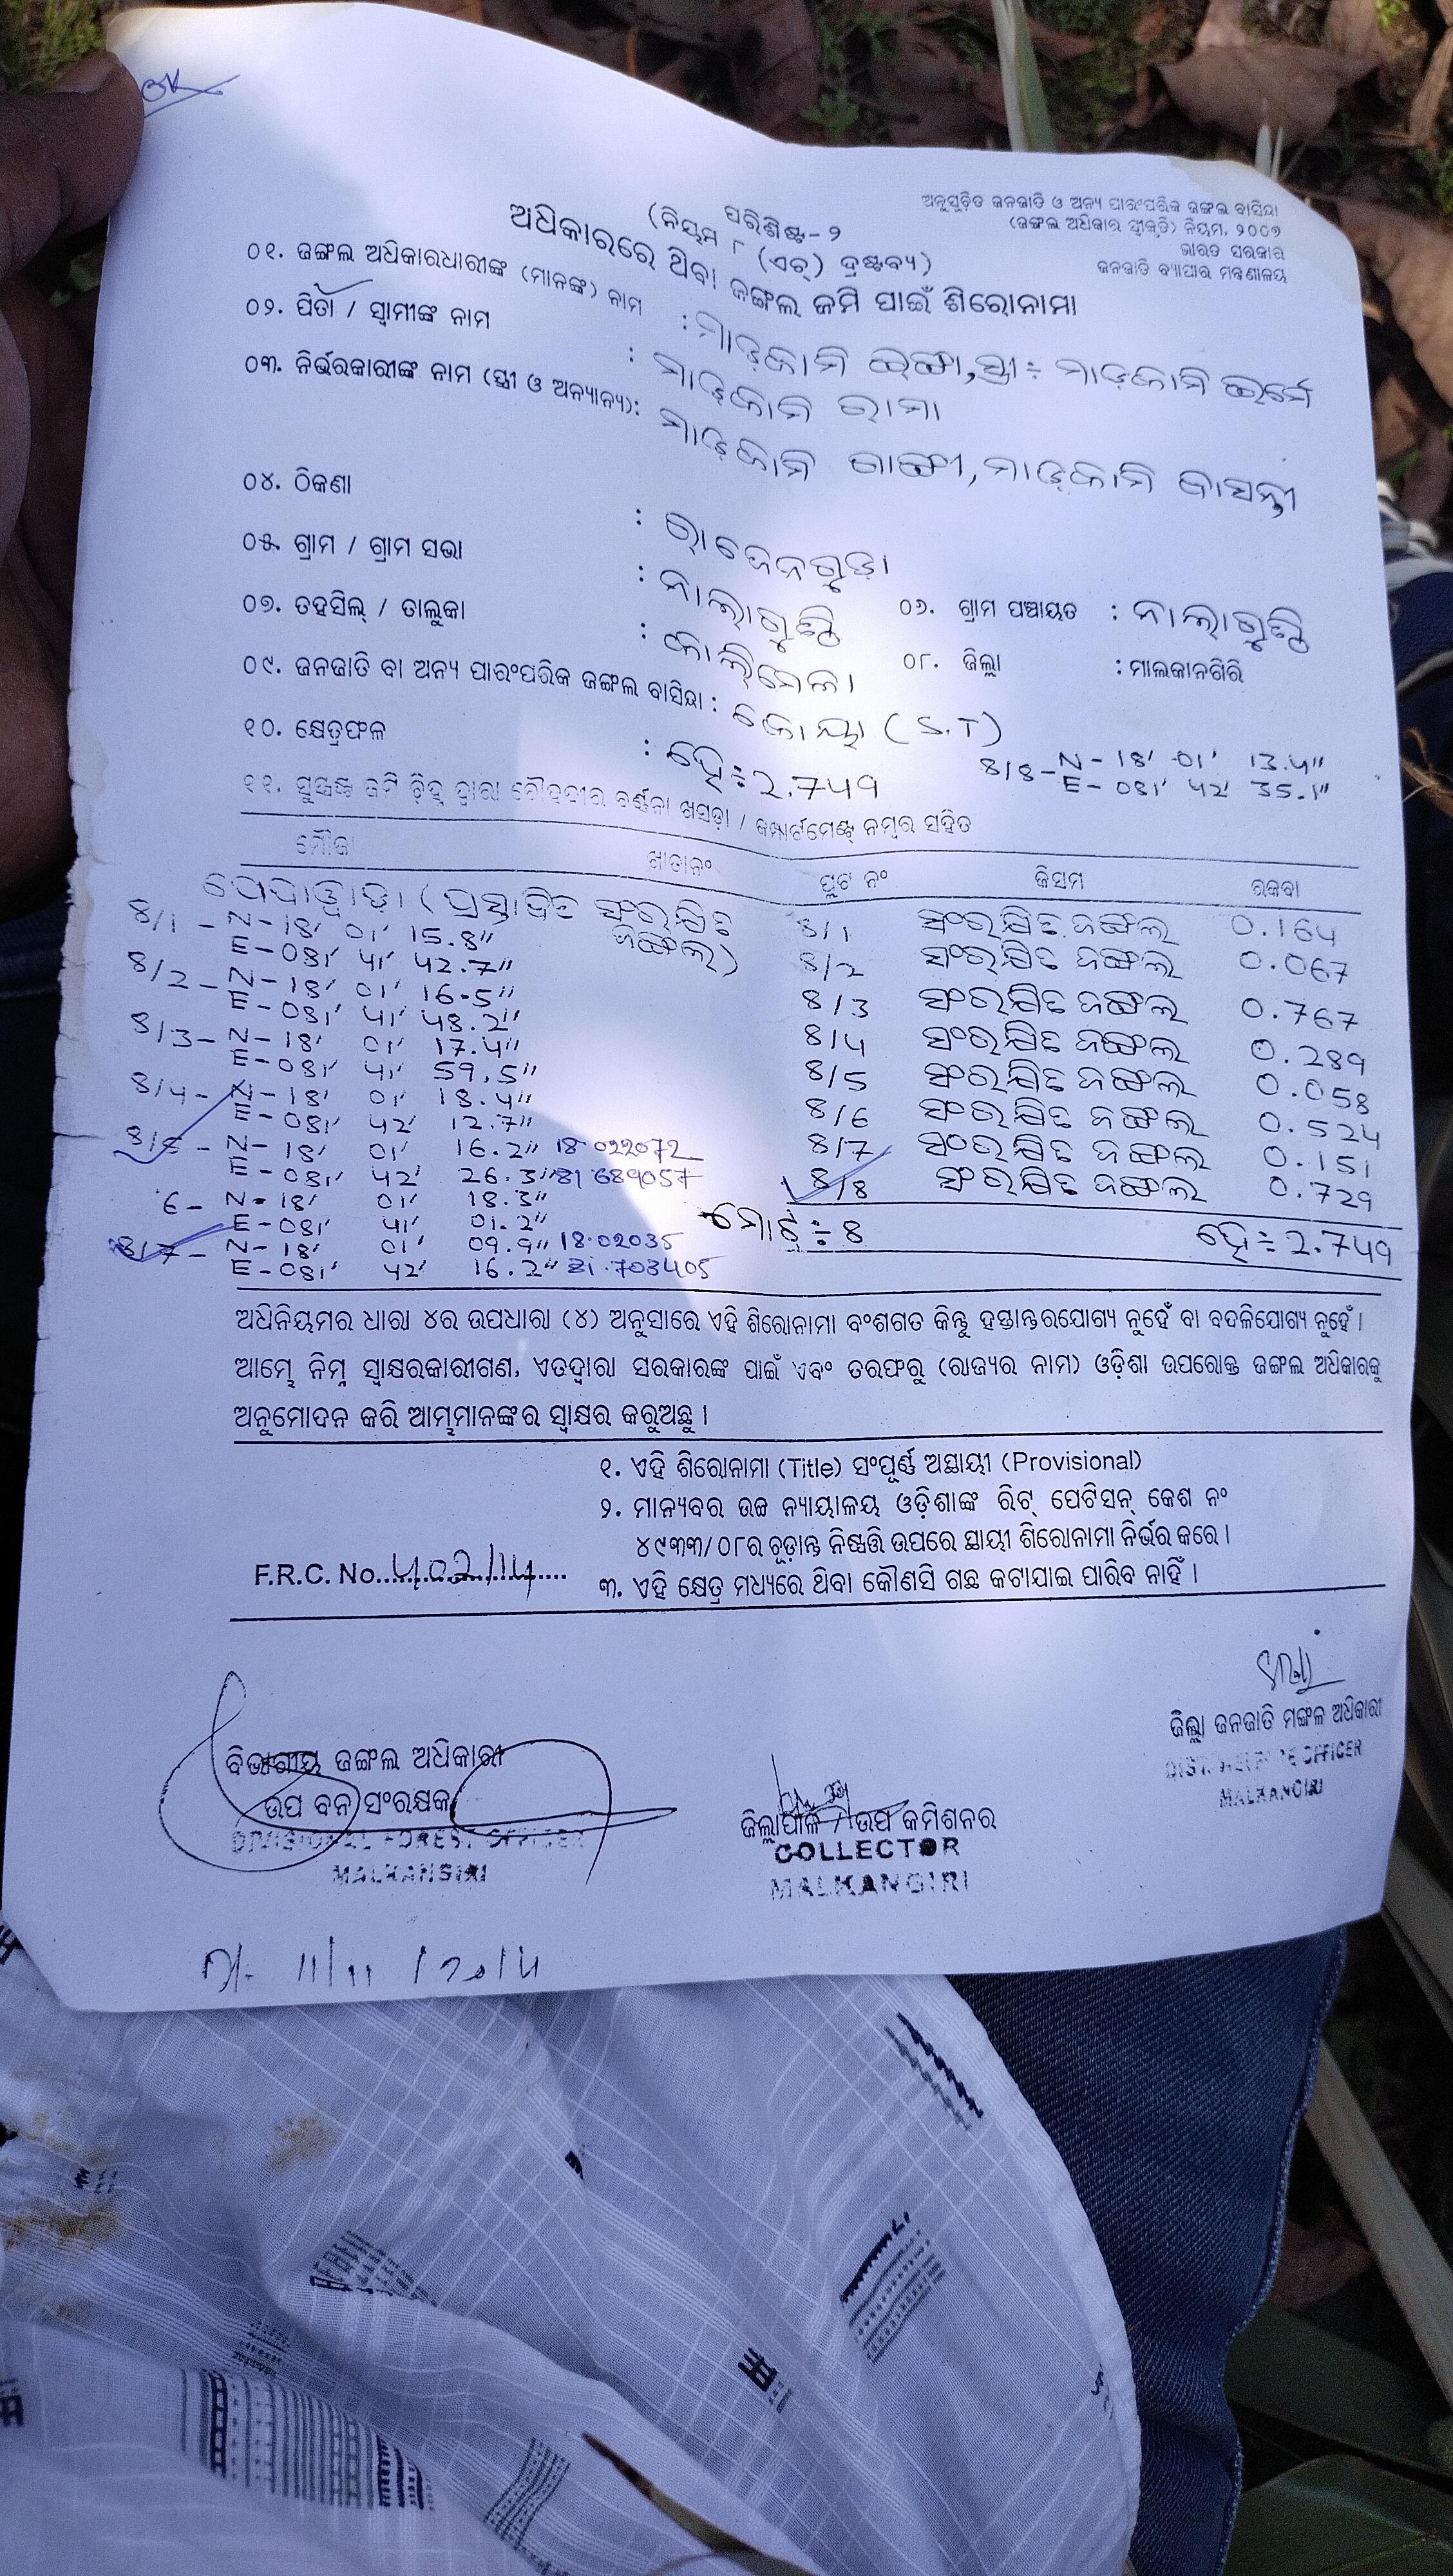 OK
ଅନୁସୂଚିତ ଜନଜାତି ଓ ଅନ୍ୟ ପାରଂପରିକ ଜଙ୍ଗଲ ବାସିନ୍ଦା
(ଜଙ୍ଗଲ ଅଧିକାର ସ୍ୱୀକୃତି) ନିୟମ, ୨୦୦୭
ଭାରତ ସରକାର
ଜନଜାତି ବ୍ୟାପାର ମନ୍ତ୍ରଣାଳୟ
ପରିଶିଷ୍ଟ-୨
(ନିୟମ ୮ (ଏଚ୍) ଦ୍ରଷ୍ଟବ୍ୟ)
ଅଧିକାରରେ ଥିବା ଜଙ୍ଗଲ ଜମି ପାଇଁ ଶିରୋନାମା
୦୧. ଜଙ୍ଗଲ ଅଧିକାରଧାରୀଙ୍କ (ମାନଙ୍କ) ନାମ : ମାଡ଼କାମି ଇଙ୍ଗା, ସ୍ତ୍ରୀ÷ ମାଡ଼କାମି ଇର୍ମେ
୦୨. ପିତା / ସ୍ୱାମୀଙ୍କ ନାମ : ମାଡ଼କାମି ରାମା
୦୩. ନିର୍ଭରକାରୀଙ୍କ ନାମ (ସ୍ତ୍ରୀ ଓ ଅନ୍ୟାନ୍ୟ): ମାଡ଼କାମି ଗାଙ୍ଗୀ, ମାଡ଼କାମି ବାସନ୍ତୀ
୦୪. ଠିକଣା : ରାଜେନଗୁଡ଼ା
୦୫. ଗ୍ରାମ / ଗ୍ରାମ ସଭା : ନାଲାଗୁଣ୍ଠି ୦୬. ଗ୍ରାମ ପଞ୍ଚାୟତ : ନାଲାଗୁଣ୍ଠି
୦୭. ତହସିଲ୍ / ତାଲୁକା : କାଲିମେଳା ୦୮. ଜିଲ୍ଲା : ମାଲକାନଗିରି
୦୯. ଜନଜାତି ବା ଅନ୍ୟ ପାରଂପରିକ ଜଙ୍ଗଲ ବାସିନ୍ଦା : କୋୟା (S.T)
୧୦. କ୍ଷେତ୍ରଫଳ : ହେ÷2.749 8/8 - N- 18' 01' 13.4"
E- 081' 42' 35.1"
୧୧. ସୁସ୍ପଷ୍ଟ ଜମି ଚିହ୍ନ ଦ୍ୱାରା ଚୌହଦୀର ବର୍ଣ୍ଣନା ଖସଡ଼ା / କମ୍ପାର୍ଟମେଣ୍ଟ ନମ୍ବର ସହିତ
ମୌଜା ଖାତା ନଂ ପ୍ଲଟ ନଂ କିସମ ରକବା
(ପ୍ରସ୍ତାବିତ ସଂରକ୍ଷିତ ଜଙ୍ଗଲ)
8/1 - N- 18' 01' 15.8" 8/1 ସଂରକ୍ଷିତ ଜଙ୍ଗଲ 0.164
E- 081' 41' 42.7" 8/2 ସଂରକ୍ଷିତ ଜଙ୍ଗଲ 0.067
8/2 - N- 18' 01' 16.5" 8/3 ସଂରକ୍ଷିତ ଜଙ୍ଗଲ 0.767
E- 081' 41' 48.2" 8/4 ସଂରକ୍ଷିତ ଜଙ୍ଗଲ 0.289
8/3 - N- 18' 01' 17.4" 8/5 ସଂରକ୍ଷିତ ଜଙ୍ଗଲ 0.058
E- 081' 41' 59.5" 8/6 ସଂରକ୍ଷିତ ଜଙ୍ଗଲ 0.524
8/4 - N- 18' 01' 18.4" 8/7 ସଂରକ୍ଷିତ ଜଙ୍ଗଲ 0.151
E- 081' 42' 12.7" 8/8 ସଂରକ୍ଷିତ ଜଙ୍ଗଲ 0.729
8/5 - N- 18' 01' 16.2" 18.022072
E- 081' 42' 26.3" 81.689057
6 - N- 18' 01' 18.3"
E- 081' 41' 01.2" ମୋଟ÷ 8 ହେ÷2.749
8/7 - N- 18' 01' 09.9" 18.02035
E- 081' 42' 16.2" 81.703405
ଅଧିନିୟମର ଧାରା ୪ର ଉପଧାରା (୪) ଅନୁସାରେ ଏହି ଶିରୋନାମା ବଂଶଗତ କିନ୍ତୁ ହସ୍ତାନ୍ତରଯୋଗ୍ୟ ନୁହେଁ ବା ବଦଳିଯୋଗ୍ୟ ନୁହେଁ ।
ଆମ୍ଭେ ନିମ୍ନ ସ୍ୱାକ୍ଷରକାରୀଗଣ, ଏତଦ୍ୱାରା ସରକାରଙ୍କ ପାଇଁ ଏବଂ ତରଫରୁ (ରାଜ୍ୟର ନାମ) ଓଡ଼ିଶା ଉପରୋକ୍ତ ଜଙ୍ଗଲ ଅଧିକାରକୁ
ଅନୁମୋଦନ କରି ଆମ୍ଭମାନଙ୍କର ସ୍ୱାକ୍ଷର କରୁଅଛୁ ।
୧. ଏହି ଶିରୋନାମା (Title) ସଂପୂର୍ଣ୍ଣ ଅସ୍ଥାୟୀ (Provisional)
୨. ମାନ୍ୟବର ଉଚ୍ଚ ନ୍ୟାୟାଳୟ ଓଡ଼ିଶାଙ୍କ ରିଟ୍ ପେଟିସନ୍ କେଶ ନଂ
୪୯୩୩/୦୮ର ଚୂଡ଼ାନ୍ତ ନିଷ୍ପତ୍ତି ଉପରେ ସ୍ଥାୟୀ ଶିରୋନାମା ନିର୍ଭର କରେ ।
F.R.C. No. 402/14 ୩. ଏହି କ୍ଷେତ୍ର ମଧ୍ୟରେ ଥିବା କୌଣସି ଗଛ କଟାଯାଇ ପାରିବ ନାହିଁ ।
ଜିଲ୍ଲା ଜନଜାତି ମଙ୍ଗଳ ଅଧିକାରୀ
DIST. WELFARE OFFICER
MALKANGIRI
ବିଭାଗୀୟ ଜଙ୍ଗଲ ଅଧିକାରୀ
ଉପ ବନ ସଂରକ୍ଷକ
DIVISIONAL FOREST OFFICER
MALKANGIRI
ଜିଲ୍ଲାପାଳ / ଉପ କମିଶନର
COLLECTOR
MALKANGIRI
Dt- 11/11/2014